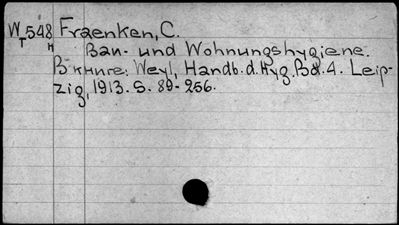 W 548 Fraenken, C.
T н
Bau- und Wohnungshygiene.
В книге: Weyl, Handb. d. Hyg. Bd. 4. Leip-
zig, 1913. S. 89-256.